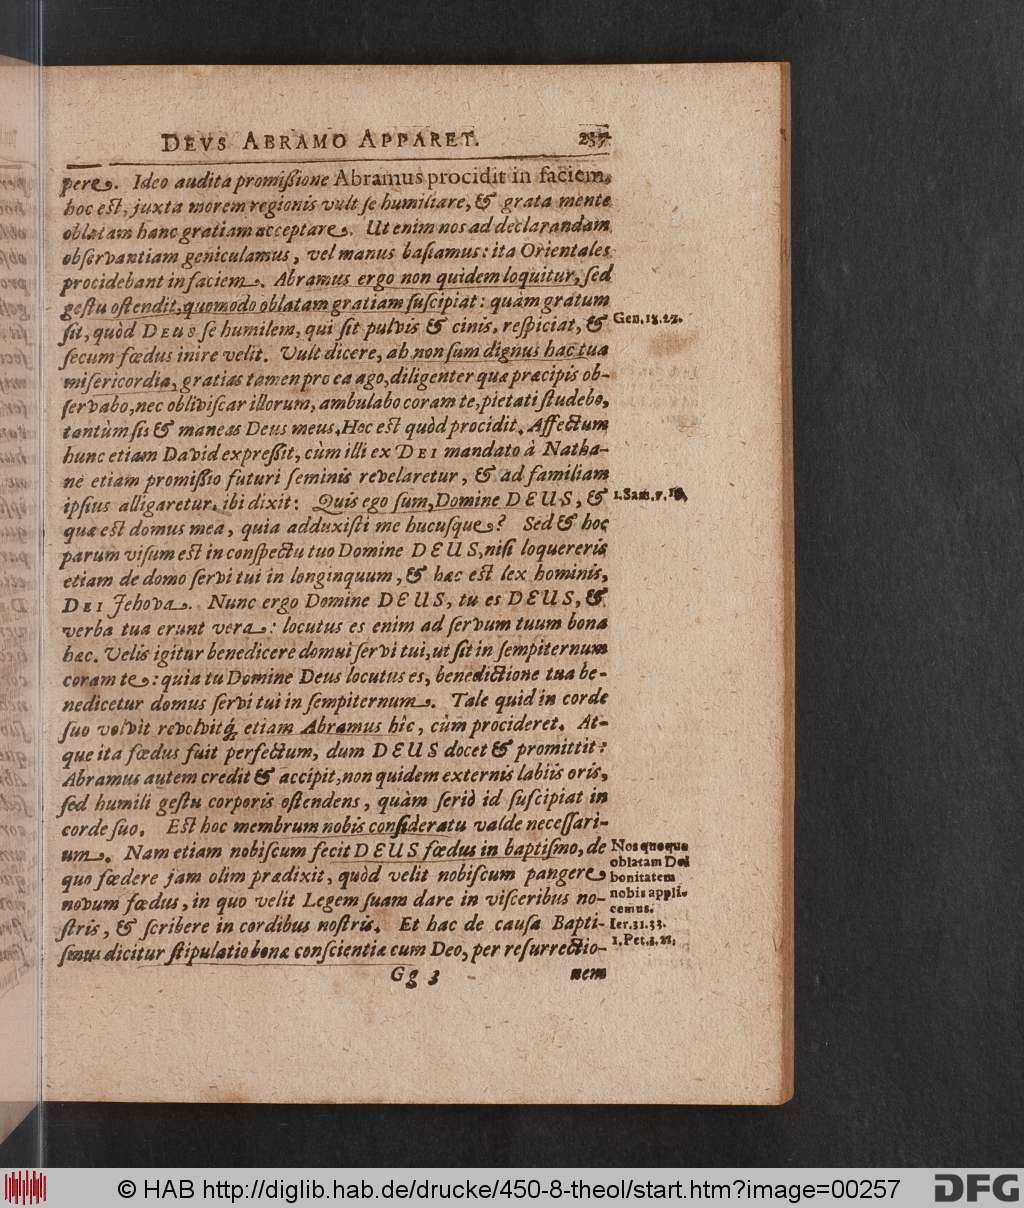 DEVS ABRAMO APPARET. 237
pere. Ideo audita promißione Abramus procidit in faciem,
hoc est, juxta morem regionis vult se humiliare, & grata mente
oblatam hanc gratiam acceptare. Ut enim nos ad declarandam
observantiam geniculamus, vel manus basiamus: ita Orientales
procidebant in faciem. Abramus ergo non quidem loquitur, sed
gestu ostendit, quomodo oblatam gratiam suscipiat: quàm gratum
sit, quòd DEUS se humilem, qui sit pulvis & cinis, respiciat, &
Gen. 18. 27.
secum fœdus inire velit. Vult dicere, ah non sum dignus hac tua
misericordia, gratias tamen pro ea ago, diligenter quæ præcipis ob-
servabo, nec obliviscar illorum, ambulabo coram te, pietati studebo,
tantùm sis & maneas Deus meus. Hoc est quòd procidit. Affectum
hunc etiam David expreßit, cùm illi ex DEI mandato à Natha-
ne etiam promißio futuri seminis revelaretur, & ad familiam
ipsius alligaretur, ibi dixit: Quis ego sum, Domine DEUS, &
1. Sam. 7. 18.
quæ est domus mea, quia adduxisti me hucusque? Sed & hoc
parum visum est in conspectu tuo Domine DEUS, nisi loquereris
etiam de domo servi tui in longinquum, & hæc est lex hominis,
DEI Jehova. Nunc ergo Domine DEUS, tu es DEUS, &
verba tua erunt vera: locutus es enim ad servum tuum bona
hæc. Velis igitur benedicere domui servi tui, ut sit in sempiternum
coram te: quia tu Domine Deus locutus es, benedictione tua be-
nedicetur domus servi tui in sempiternum. Tale quid in corde
suo volvit revolvitq́; etiam Abramus hîc, cùm procideret. At-
que ita fœdus fuit perfectum, dum DEUS docet & promittit:
Abramus autem credit & accipit, non quidem externis labiis oris,
sed humili gestu corporis ostendens, quàm seriò id suscipiat in
corde suo. Est hoc membrum nobis consideratu valde necessari-
um. Nam etiam nobiscum fecit DEUS fœdus in baptismo, de
quo fœdere jam olim prædixit, quòd velit nobiscum pangere
novum fœdus, in quo velit Legem suam dare in visceribus no-
stris, & scribere in cordibus nostris. Et hac de causa Bapti-
smus dicitur stipulatio bonæ conscientiæ cum Deo, per resurrectio-
Nos quoque
oblatam Dei
bonitatem
nobis appli-
cemus.
Ier. 31. 33.
1. Pet. 3. 21.
Gg 3 nem
© HAB http://diglib.hab.de/drucke/450-8-theol/start.htm?image=00257
DFG